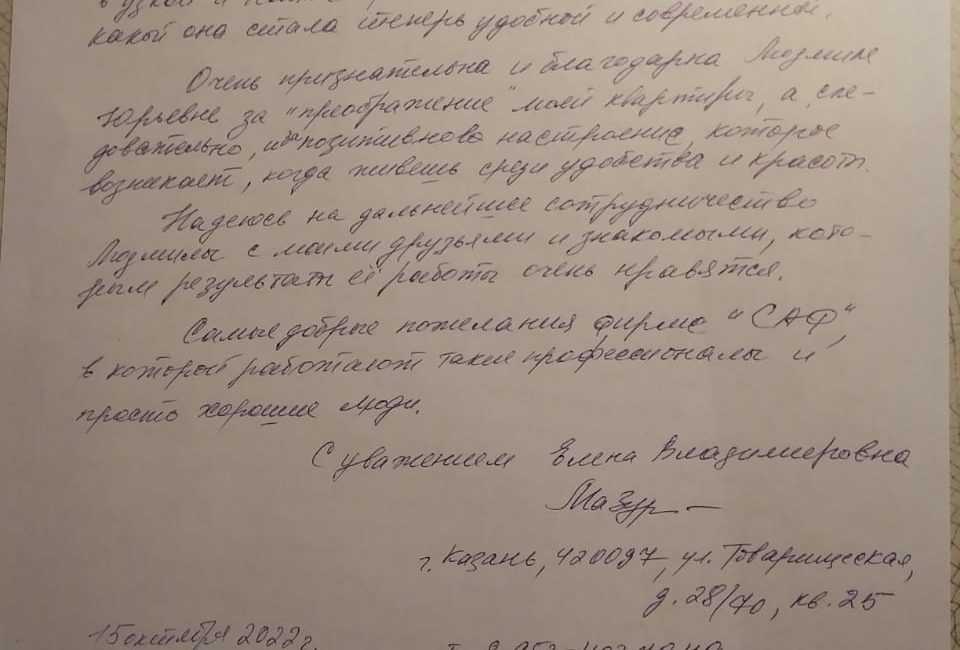 в узкой и
какой она стала теперь удобной и современной.
Очень признательна и благодарна Людмиле
Юрьевне за "преображение" моей квартиры, а сле-
довательно, и позитивного настроения, которое
возникает, когда живешь среди удобства и красоты.
Надеюсь на дальнейшее сотрудничество
Людмилы с моими друзьями и знакомыми, кото-
рым результаты её работы очень нравятся.
Самые добрые пожелания фирме "САФ",
в которой работают такие профессионалы и
просто хорошие люди.
С уважением Елена Владимировна
Мазур
г. Казань, 420097, ул. Товарищеская,
д. 28/70, кв. 25
15 октября 2022 г.